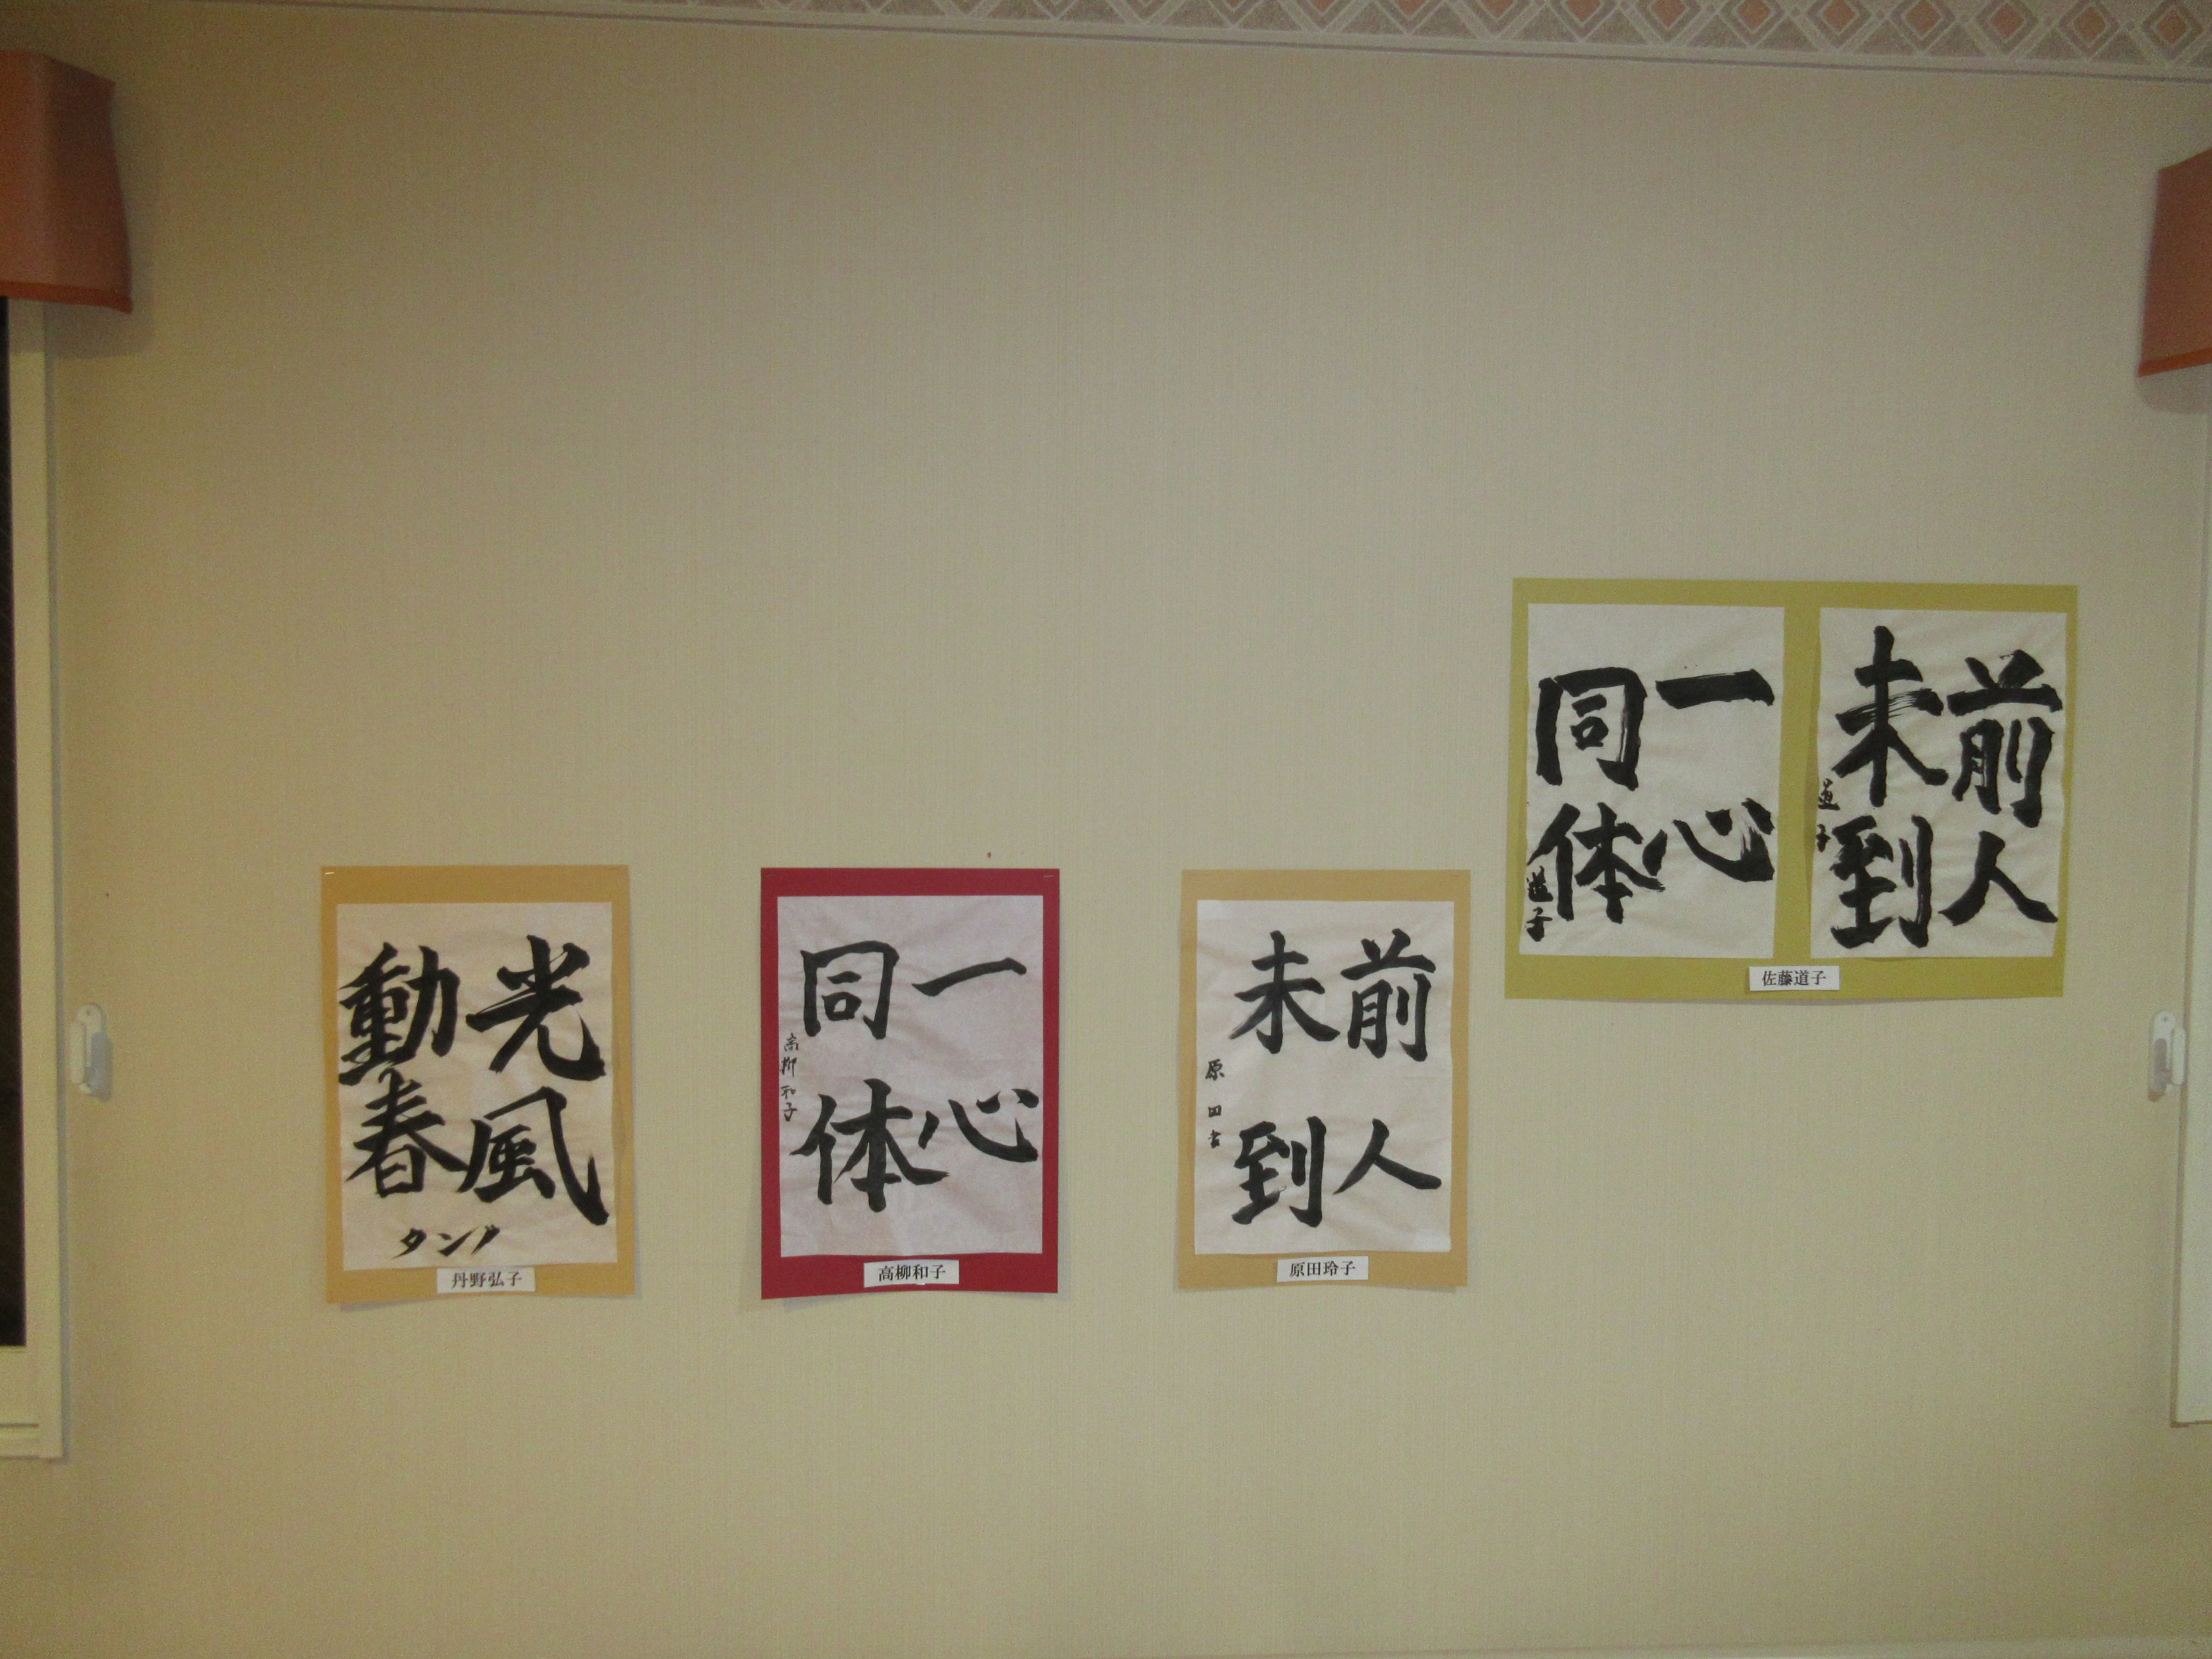 光風
動春
タンノ
丹野弘子
一心
同体
高柳和子
高柳和子
前人
未到
原田
原田玲子
前人
未到
道子
一心
同体
道子
佐藤道子